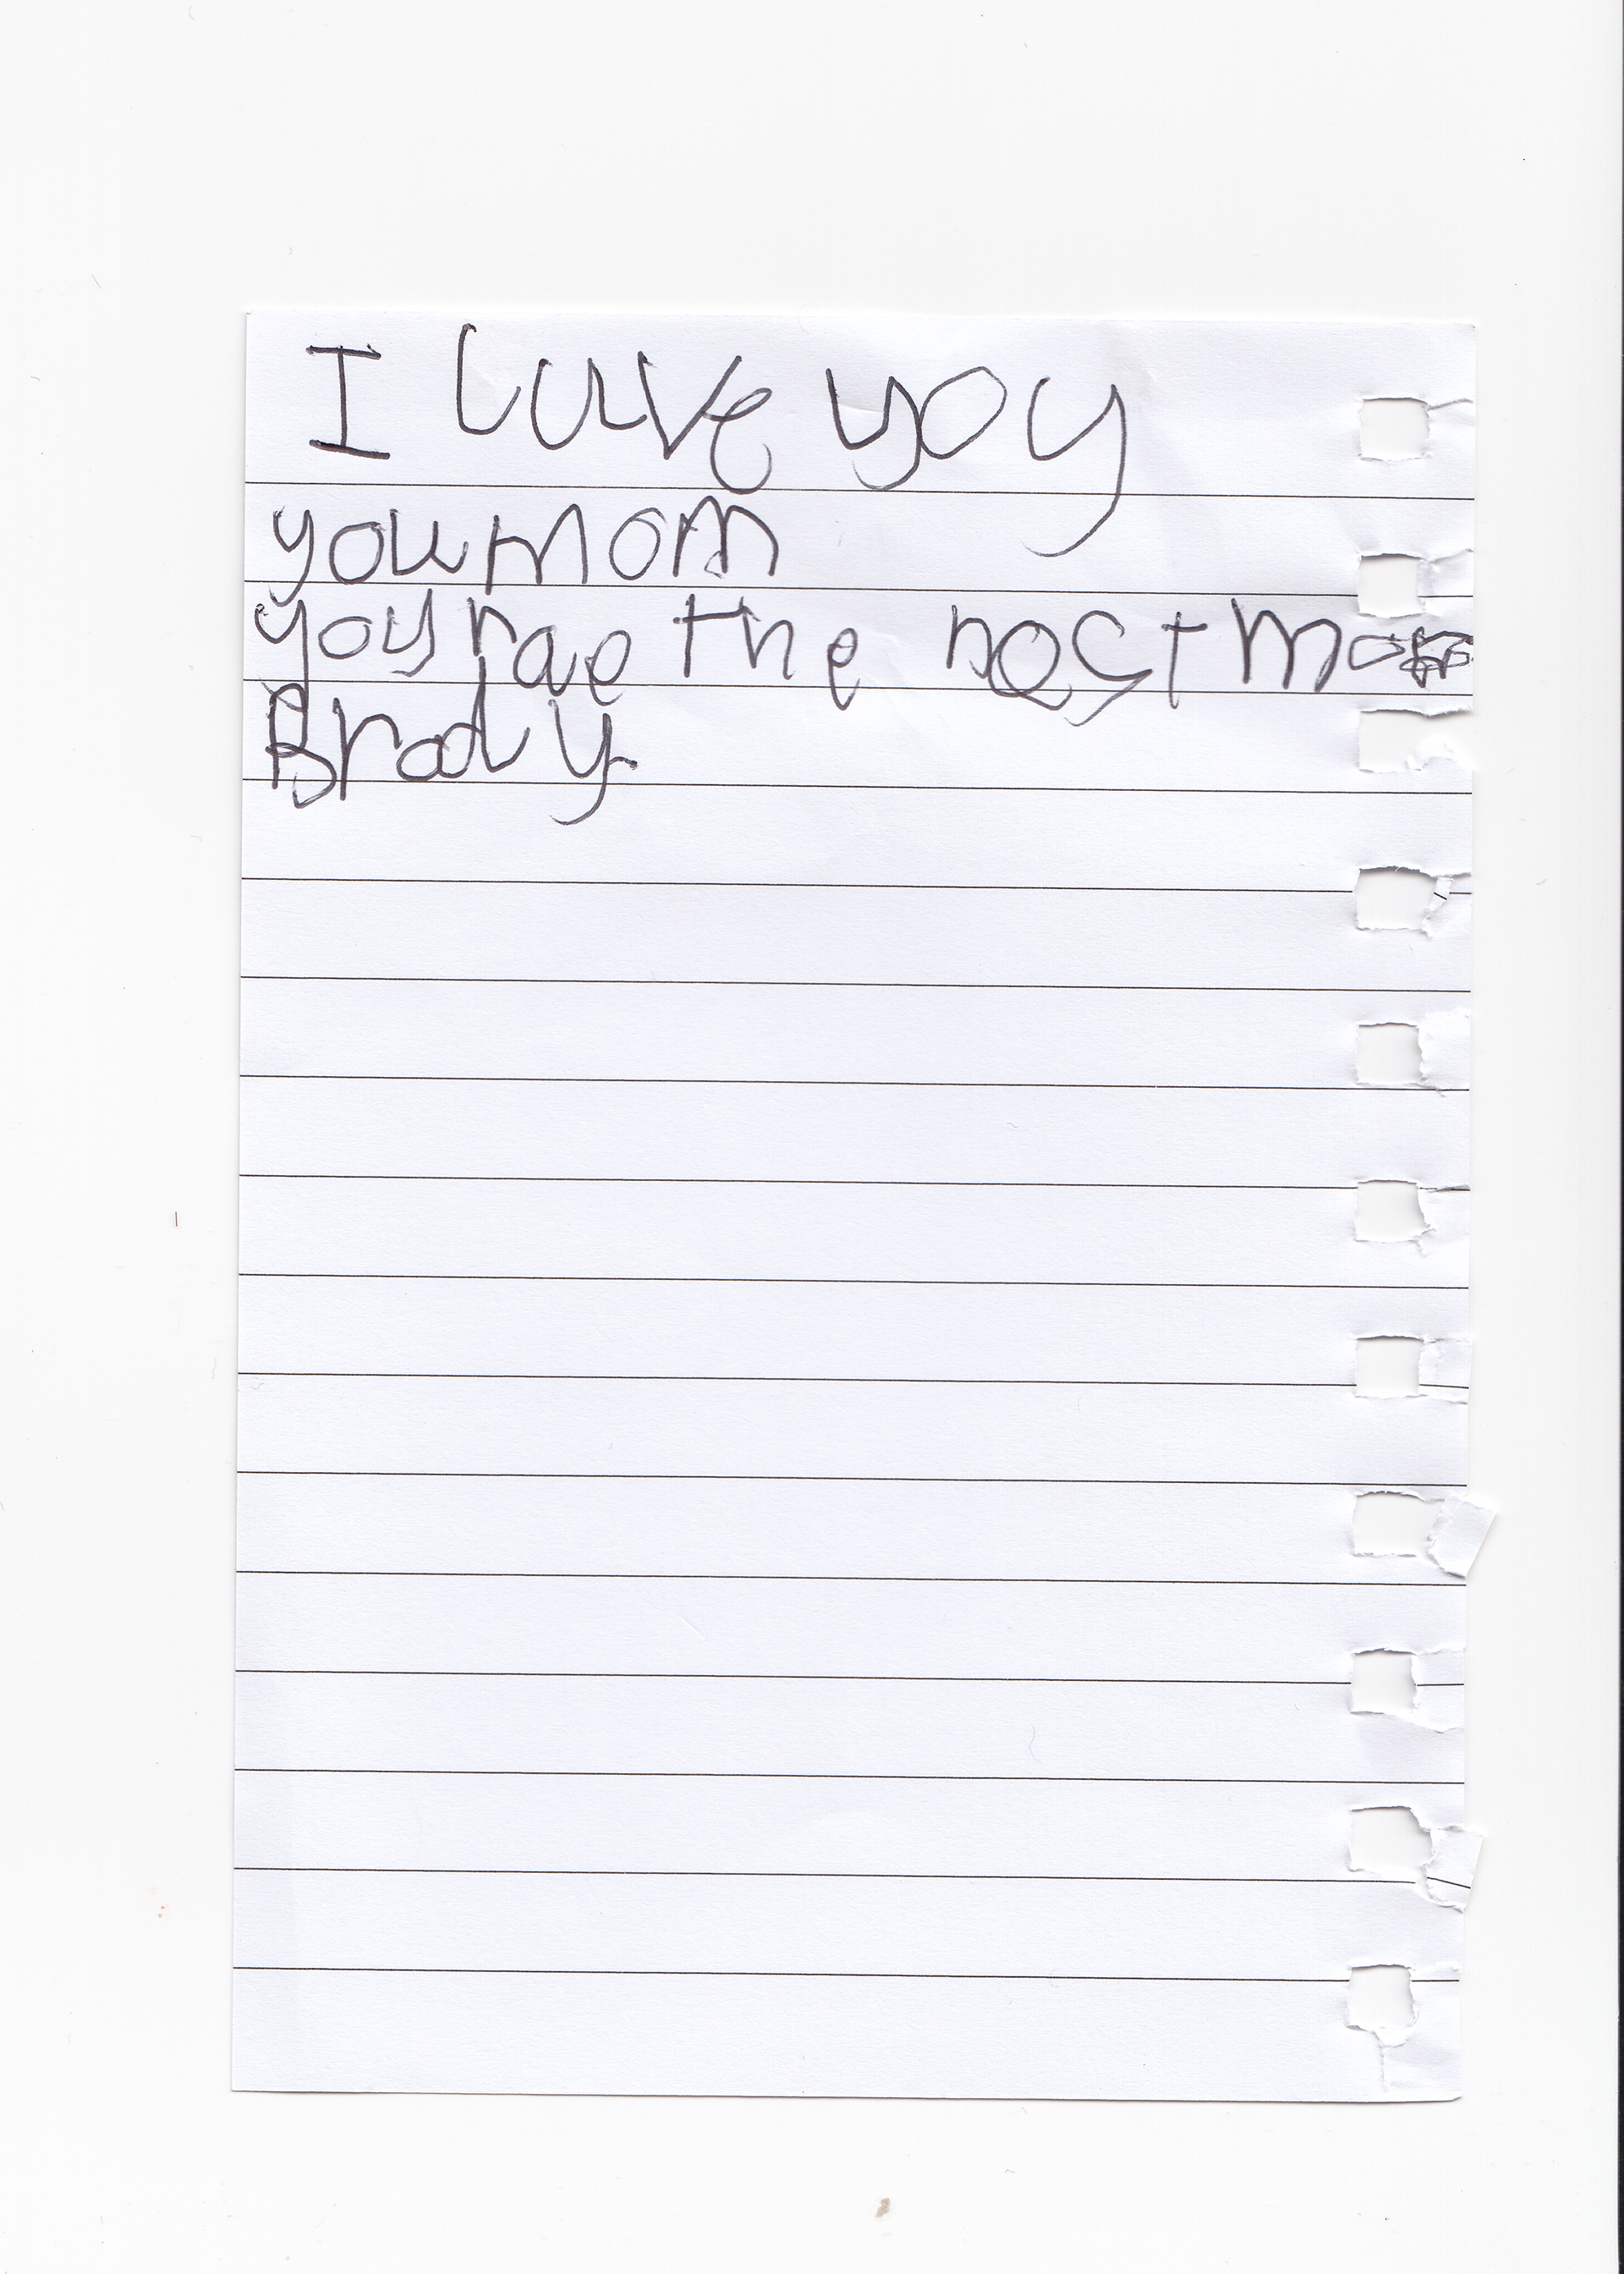 I luve yoy
you mom
yoy rae the nost mom
Brady